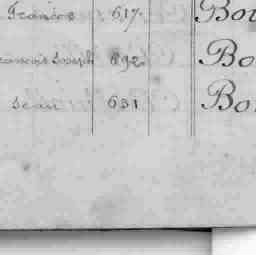 Francois 617. Bou
Francois Joseph 892. Bo
Jean 631 Bo